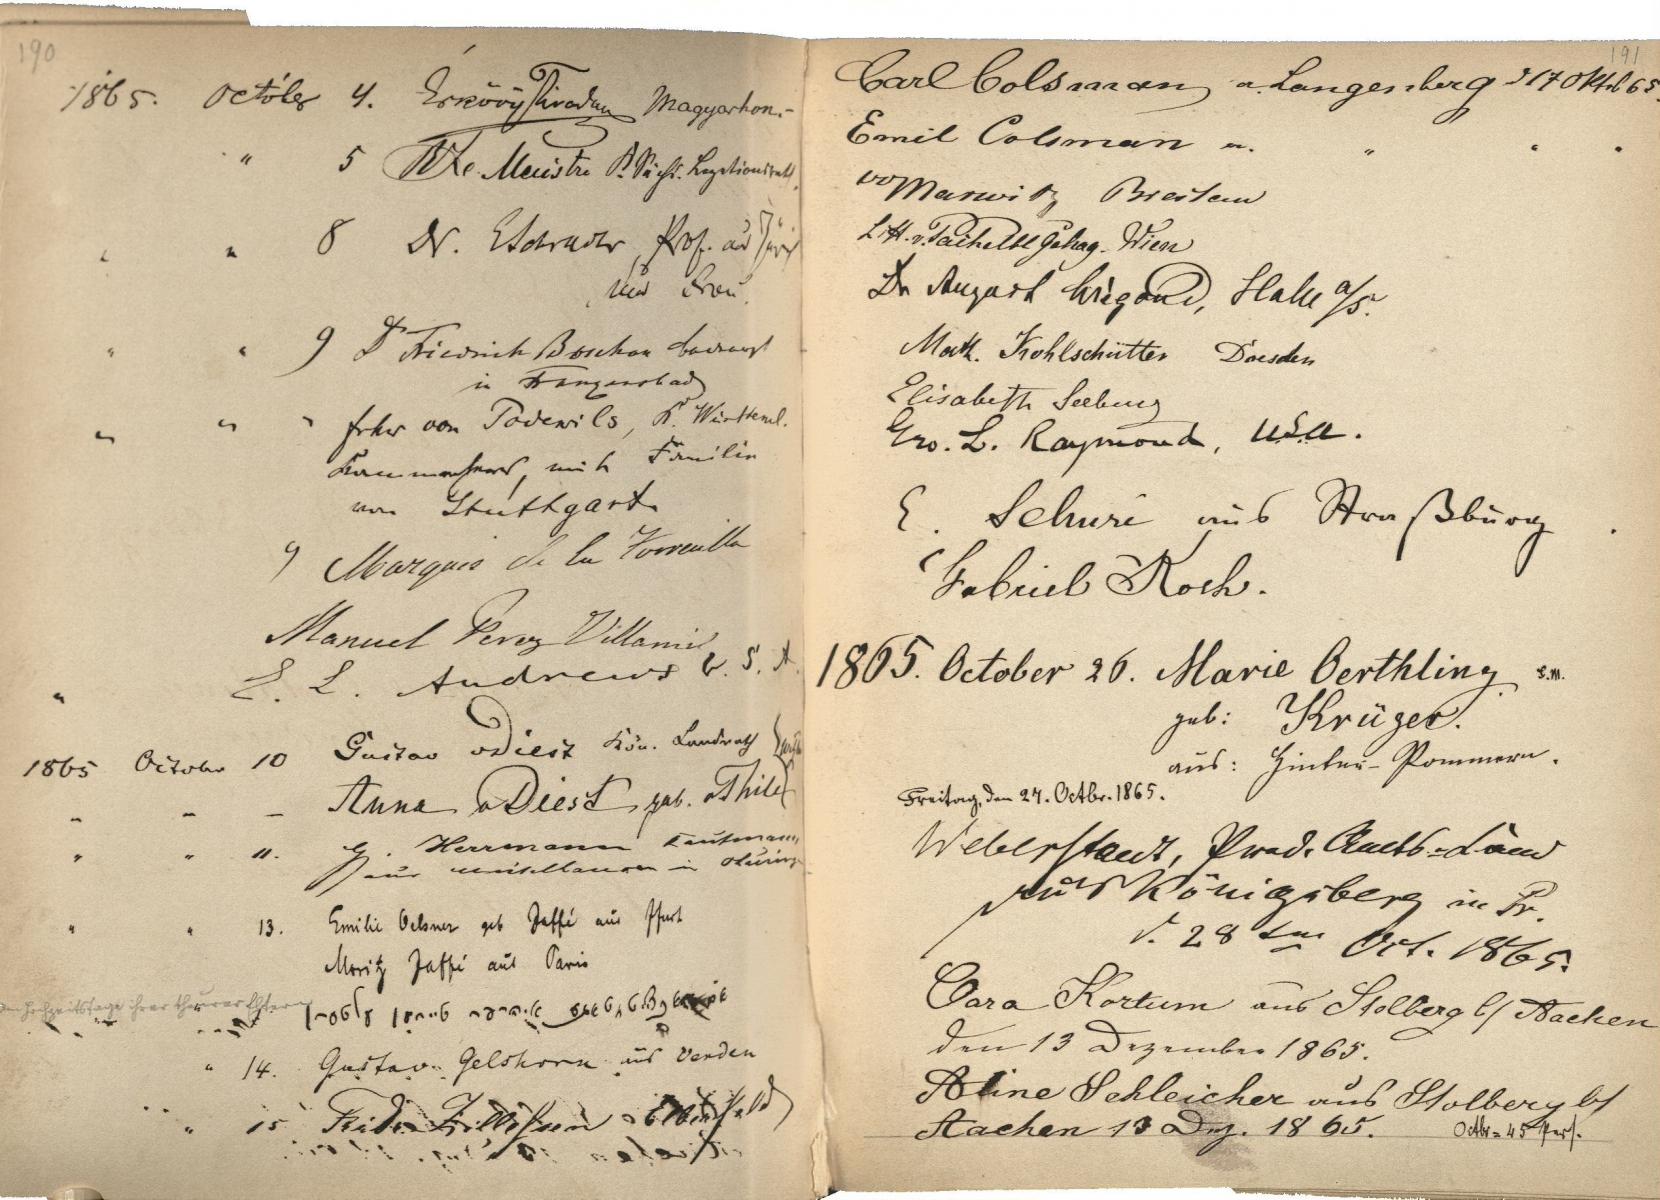 190
1865. October 4. Erkövy Magyarhon.-
" 5 Meistre Sächs. Legationsrath
" " 8 Dr. ESchrader, Prof. aus Zürich
und Frau.
" " 9 Dr Friedrich Boschan badearzt
in Franzensbad
" " " frhr von Podewils, K. Württemb.
Kammerherr, mit Familie
von Stuttgart
9 Marquis de la
Manuel Perez Villamil
" E. L. Andrews U. S. A.
1865 October 10 Gustav vDiest Kön. Landrath
" " " Anna vDiest geb. vThile
" " 11. G. Herrmann Kaufmann
aus in
" " 13. Emilie Oelsner geb Jaffé aus
Moritz Jaffé aus Paris
am Hochzeitstage ihrer theuren Eltern
" 14. Gustav Gelshorn aus Verden
" 15 Elberfeld
191
Carl Colsman a. Langenberg d 17 Oktb 65.
Emil Colsman a. " " "
v Marwitz Breslau
Wien
Dr August Wiegand, Halle a/S.
Math. Kohlschütter Dresden
Elisabeth Seeburg
Geo. L. Raymond, U.S.A.
E. Schuré aus Straßburg.
Gabriel Koch.
1865. October 26. Marie Oerthling
geb: Krüger.
aus: Hinter-Pommern.
Freitag, den 27. Octbr. 1865.
Weberstaedt,
aus Königsberg in Pr.
d. 28 ten Oct. 1865.
Cara Kortum aus Stolberg b/ Aachen
den 13 Dezember 1865.
Aline Schleicher aus Stolberg b/
Aachen 13 Dez. 1865.
Octbr = 45 Pers.